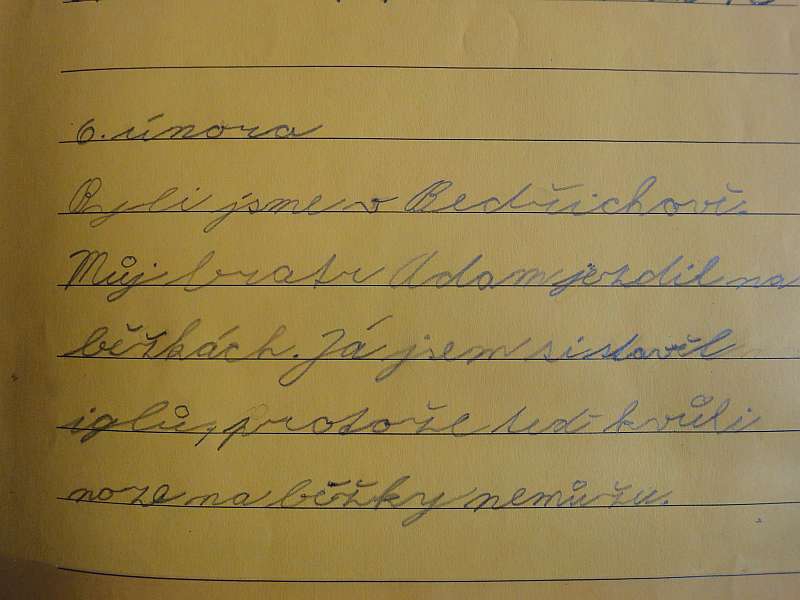 6. února
Byli jsme v Bedřichově.
Můj bratr Adam jezdil na
běžkách. Já jsem si stavěl
iglů, protože teď kvůli
noze na běžky nemůžu.